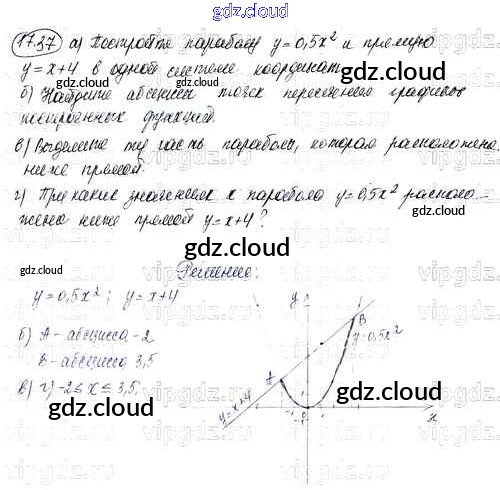 gdz.cloud
17.37 а) Постройте параболу y=0,5x² и прямую
y=x+4 в одной системе координат
gdz.cloud
б) Найдите абсциссы точек пересечения графиков
построенных функций.
gdz.cloud
в) Выделите ту часть параболы, которая расположена
ниже прямой.
gdz.cloud
г) При каких значениях x парабола y=0,5x² располо-
жена ниже прямой y=x+4?
gdz.cloud
Решение:
gdz.cloud
y=0,5x²; y=x+4
б) A - абсцисса -2
B - абсцисса 3,5
в) г) -2≤x≤3,5.
gdz.cloud
y
B
y=0,5x²
A
y=x+4
x
gdz.cloud
gdz.cloud